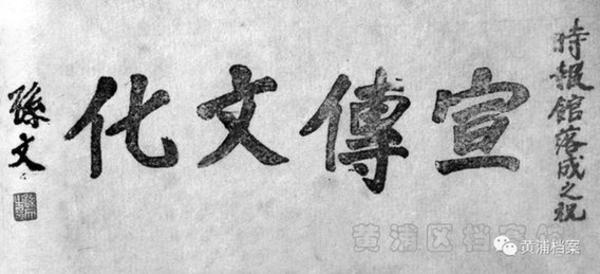 時報館落成之祝
宣傳文化
孫文
黄浦区档案馆
黄浦档案